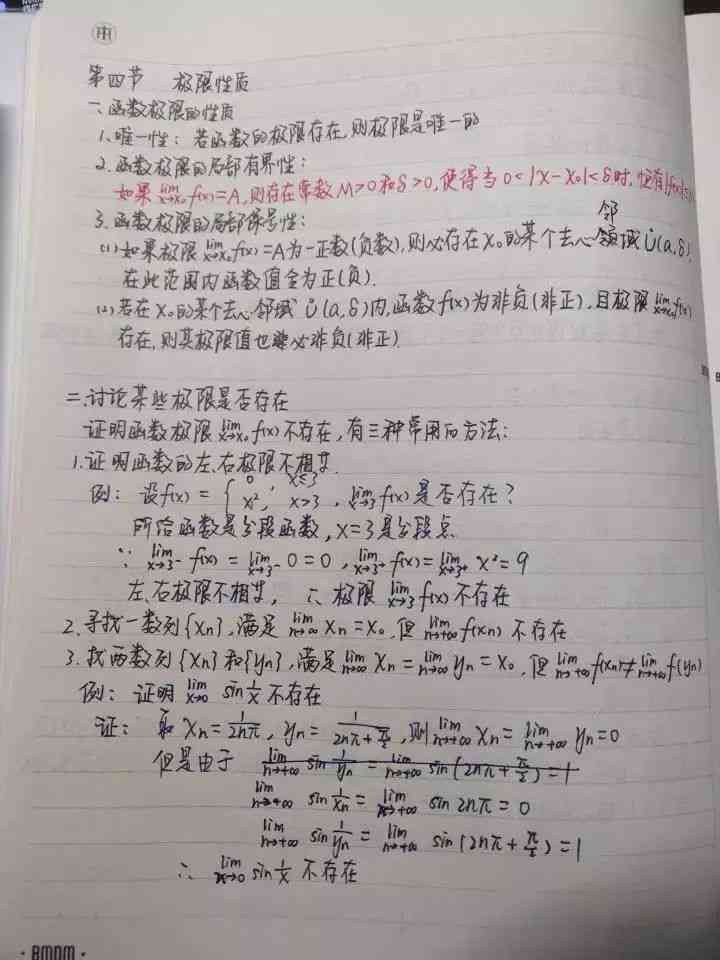 第四节 极限性质
一、函数极限的性质
1、唯一性：若函数的极限存在，则极限是唯一的
2、函数极限的局部有界性：
如果 lim x→x₀ f(x)=A，则存在常数 M>0 和 δ>0，使得当 0<|x-x₀|<δ时，恒有|f(x)|≤
3、函数极限的局部保号性：
邻
(1) 如果极限 lim x→x₀ f(x)=A为一正数(负数)，则必存在 x₀的某个去心领域 Ů(a,δ)，
在此范围内函数值全为正(负)．
(2) 若在 x₀的某个去心邻域 Ů(a,δ)内，函数f(x)为非负(非正)，且极限 lim x→x₀ f(x)
存在，则其极限值也必非负(非正)．
二、讨论某些极限是否存在
证明函数极限 lim x→x₀ f(x)不存在，有三种常用的方法：
1、证明函数的左、右极限不相等．
例：设f(x) = { 0, x≤3 ; x², x>3 , lim x→3 f(x)是否存在？
所给函数是分段函数，x=3是分段点
∵ lim x→3⁻ f(x) = lim x→3⁻ 0 = 0, lim x→3⁺ f(x) = lim x→3⁺ x² = 9
左、右极限不相等，∴ 极限 lim x→3 f(x)不存在
2、寻找一数列{xn}，满足 lim n→∞ xn = x₀，但 lim n→+∞ f(xn) 不存在
3、找两数列{xn}和{yn}，满足 lim n→∞ xn = lim n→∞ yn = x₀，但 lim n→+∞ f(xn) ≠ lim n→+∞ f(yn)
例：证明 lim x→0 sin 1/x 不存在
证：取 xn = 1/2nπ, yn = 1/(2nπ+π/2), 则 lim n→+∞ xn = lim n→+∞ yn = 0
但是由于 lim n→+∞ sin 1/yn = lim n→+∞ sin(2nπ+π/2) = 1
lim n→+∞ sin 1/xn = lim n→+∞ sin 2nπ = 0
lim n→+∞ sin 1/yn = lim n→+∞ sin(2nπ+π/2) = 1
∴ lim x→0 sin 1/x 不存在
· BMDM ·